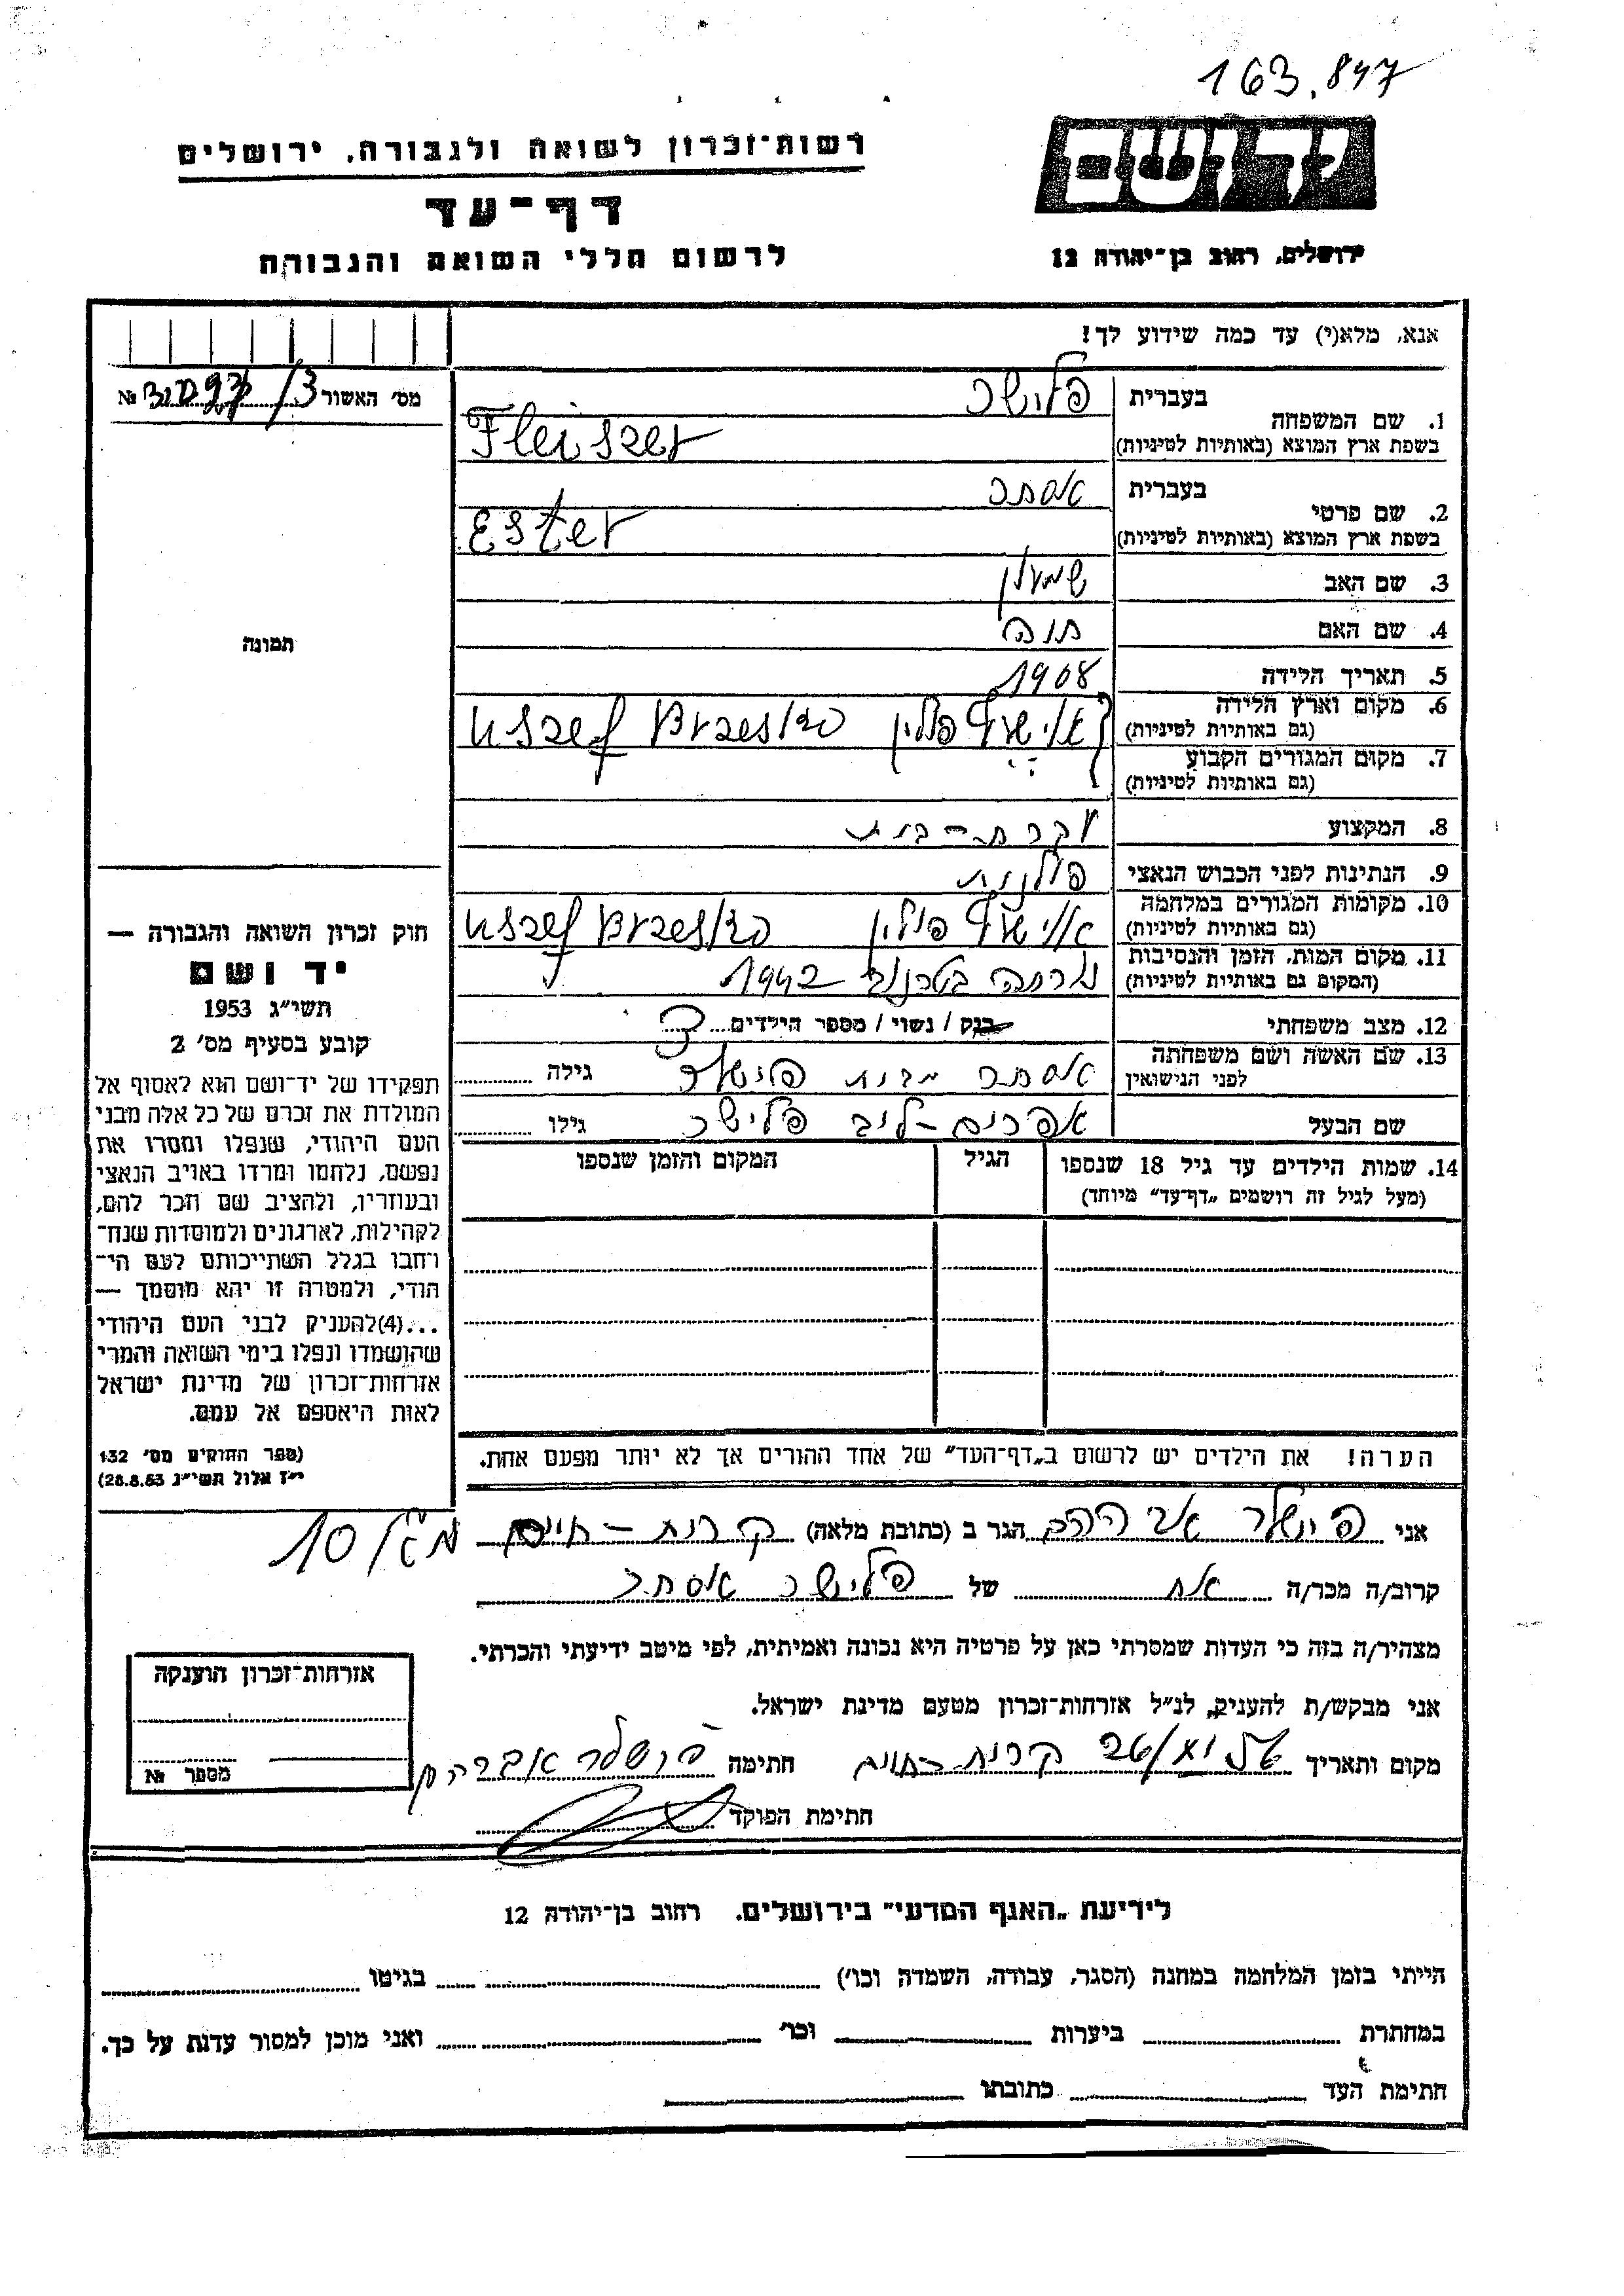 163.847
רשות־זכרון לשואה ולגבורה, ירושלים
דף־עד
לרשום חללי השואה והגבורה
יד ושם
ירושלים, רחוב בן־יהודה 12
אנא, מלא(י) עד כמה שידוע לך!
מס' האשור №
בעברית פליישר
1. שם המשפחה
בשפת ארץ המוצא (באותיות לטיניות) Fleiszer
בעברית אסתר
2. שם פרטי
בשפת ארץ המוצא (באותיות לטיניות) Ester
3. שם האב שמעון
4. שם האם חוה
5. תאריך הלידה 1908
6. מקום וארץ הלידה פולין Brzesko
(גם באותיות לטיניות)
7. מקום המגורים הקבוע
(גם באותיות לטיניות)
8. המקצוע עקרת-בית
9. הנתינות לפני הכבוש הנאצי פולנית
10. מקומות המגורים במלחמה פולין Brzesko
(גם באותיות לטיניות)
11. מקום המות, הזמן והנסיבות בטרנוב 1942
(המקום גם באותיות לטיניות)
12. מצב משפחתי רווק / נשוי / מספר הילדים
13. שם האשה ושם משפחתה אסתר מבית גילה
לפני הנישואין
שם הבעל אפרים-ליב פליישר גילו
14. שמות הילדים עד גיל 18 שנספו הגיל המקום והזמן שנספו
(מעל לגיל זה רושמים „דף־עד” מיוחד)
הערה! את הילדים יש לרשום ב„דף־העד” של אחד ההורים אך לא יותר מפעם אחת.
תמונה
חוק זכרון השואה והגבורה —
יד ושם
תשי״ג 1953
קובע בסעיף מס' 2
תפקידו של יד־ושם הוא לאסוף אל
המולדת את זכרם של כל אלה מבני
העם היהודי, שנפלו ומסרו את
נפשם, נלחמו ומרדו באויב הנאצי
ובעוזריו, ולהציב שם וזכר להם,
לקהילות, לארגונים ולמוסדות שנח־
רחבו בגלל השתייכותם לעם הי־
הודי, ולמטרה זו יהא מוסמך —
...(4) להעניק לבני העם היהודי
שהושמדו ונפלו בימי השואה והמרי
אזרחות־זכרון של מדינת ישראל
לאות היאספם אל עמם.
(ספר החוקים מס' 132
י״ז אלול תשי״ג 28.8.53)
אני אברהם הגר ב (כתובת מלאה) קרית-חיים 10
קרוב/ה מכר/ה אח של פליישר אסתר
מצהיר/ה בזה כי העדות שמסרתי כאן על פרטיה היא נכונה ואמיתית, לפי מיטב ידיעתי והכרתי.
אני מבקש/ת להעניק לנ״ל אזרחות־זכרון מטעם מדינת ישראל.
מקום ותאריך קרית-חיים חתימה אברהם
חתימת הפוקד
אזרחות־זכרון הוענקה
מספר №
לידיעת „האגף המדעי” בירושלים. רחוב בן־יהודה 12
הייתי בזמן המלחמה במחנה (הסגר, עבודה, השמדה וכו') בגיטו
במחתרת ביערות וכו' ואני מוכן למסור עדות על כך.
חתימת העד כתובתו